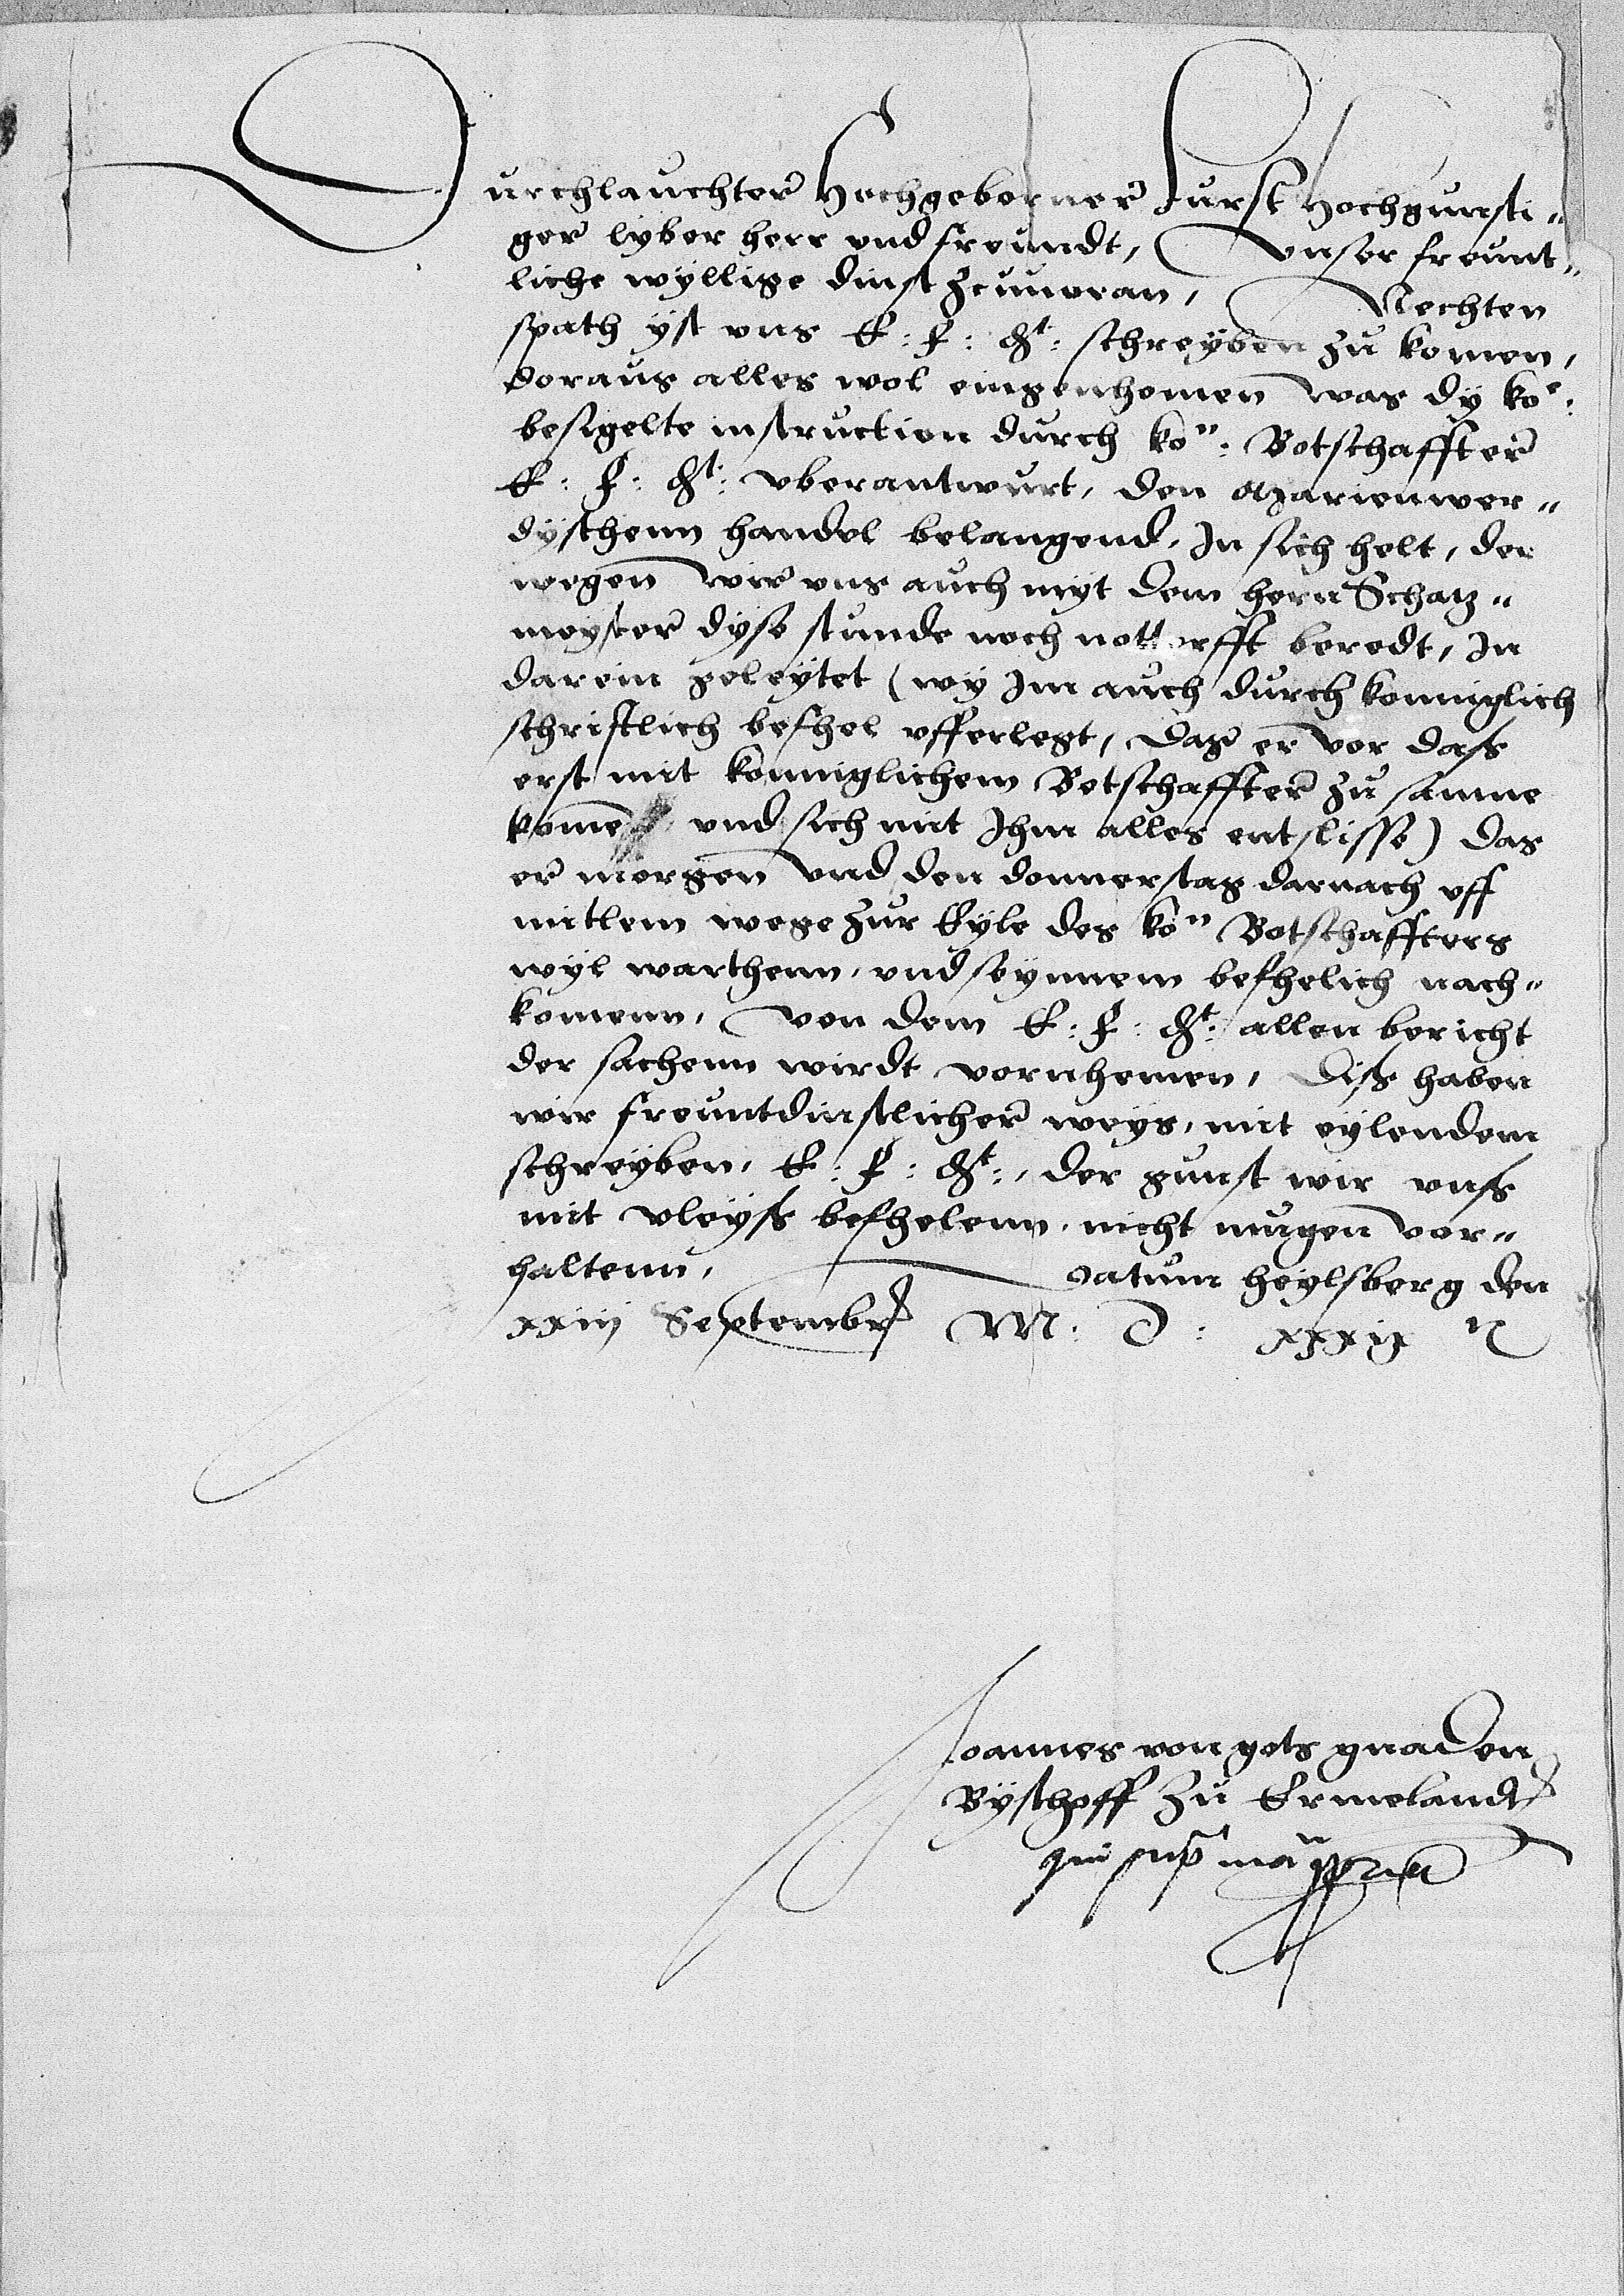 Durchlauchter Hochgeborner Furst Hochgunsti„
ger lyber herr und freundt, Unser freunt„
liche wyllige dinst zcuuoran, Nechten
spath yst uns E: F: Gt: schreyben zu komen,
doraus alles wol eingenhomen was dy koe:
besigelte instruction durch kon: Botschaffter
E: F: Gt: uberantwurt, den Marienwer„
dyschenn handel belangend, In sich helt, der
wegen wir uns auch myt dem hern Schatz„
meyster dyse stunde noch notturfft beredt, In
darein geleytet (wy Im auch durch konniglich
schriftlich befhel ufferlegt, das er vor dass
erst mit konniglichem Botschaffter zu samne
kome und sich mit Ihm alles entslisse) das
er morgen und den donnerstag darnach uff
mitlem wege zur Eyle des kon Botschaffters
wyl warthenn, und seynnem befhelich nach„
komenn, von dem E: F: Gt: allen bericht
der sachenn wirdt vornhemen, Diss haben
wir freuntdinstlicher weys, mit eylendem
schreyben, E: F: Gt:, der gunst wir unss
mit vleyss befhelenn, nicht mugen vor„
haltenn, Datum Heylsberg den
xxiij Septembris M: D: xxxix
Joannes von gots gnaden
Byschoff zu Ermelandt
manu